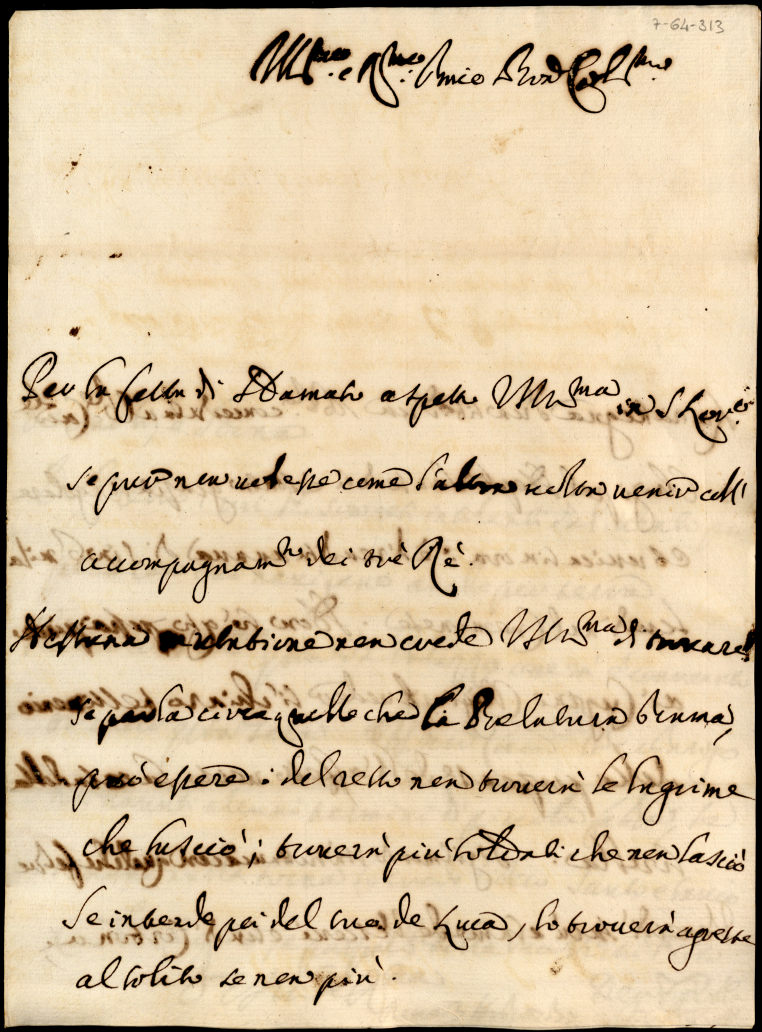 7-64-313
Ill.mo e R.mo Sig.r mio Pron Col.mo
Per la festa di Natale aspetto VS Ill.ma in
se pur non volesse come l'altra volta venir coll'
accompagnam.to dei trè Rè.
Nessuna mutatione non creda VS Ill.ma di trovare
se parla circa quello che la Prelatura brama,
può essere: del resto non troverà le lagrime
che lasciò; troverà più soldati che non lasciò
Se intende poi del suo de Luca, lo troverà agreste
al solito se non più.